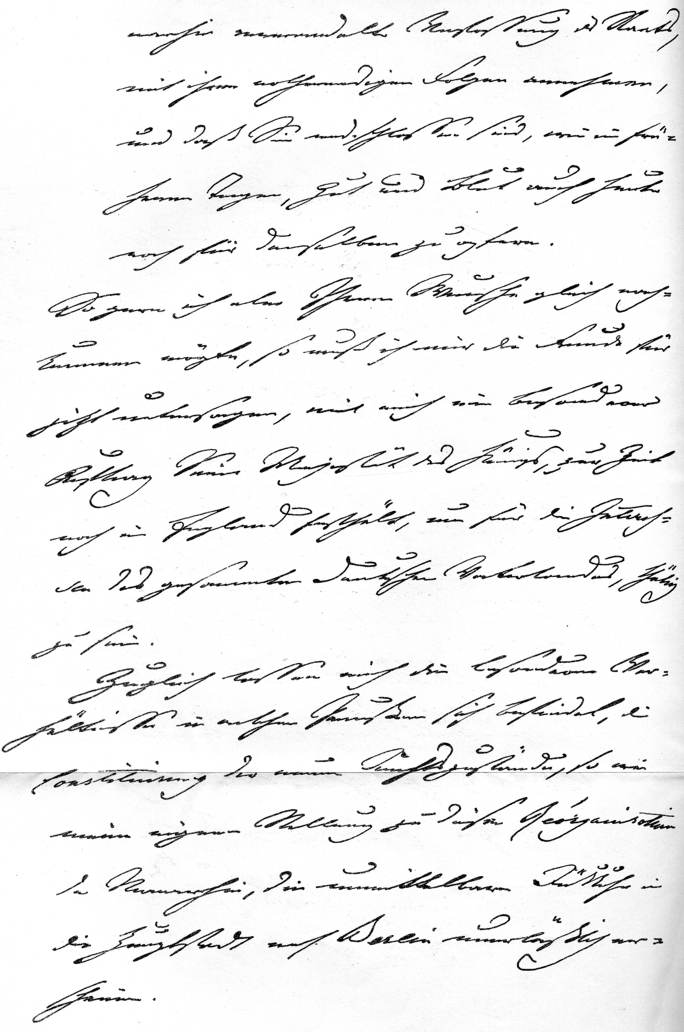 narchie verwandelte Auffassung des Staats,
mit ihren nothwendigen Folgen annehmen,
und daß Sie entschlossen sind, wie in frü-
heren Tagen, Gut und Blut auch heute
noch für denselben zu opfern.
So gern ich aber Ihrem Wunsche gleich nach-
kommen mögte, so muß ich mir die Freude für
jetzt untersagen, weil mich ein besonderer
Auftrag Seiner Majestät des Königs, zur Zeit
noch in England festhält, um für die Interes-
sen des gesammten deutschen Vaterlandes, thätig
zu sein.
Zugleich lassen mich die besonderen Ver-
hältnisse in welchen Preußen sich befindet, die
Constituirung der neuen Rechtszustände, so wie
meine eigene Stellung zu dieser Réorganisation
der Monarchie, die unmittelbare Rückkehr in
die Hauptstadt nach Berlin unerläßlich er-
scheinen.